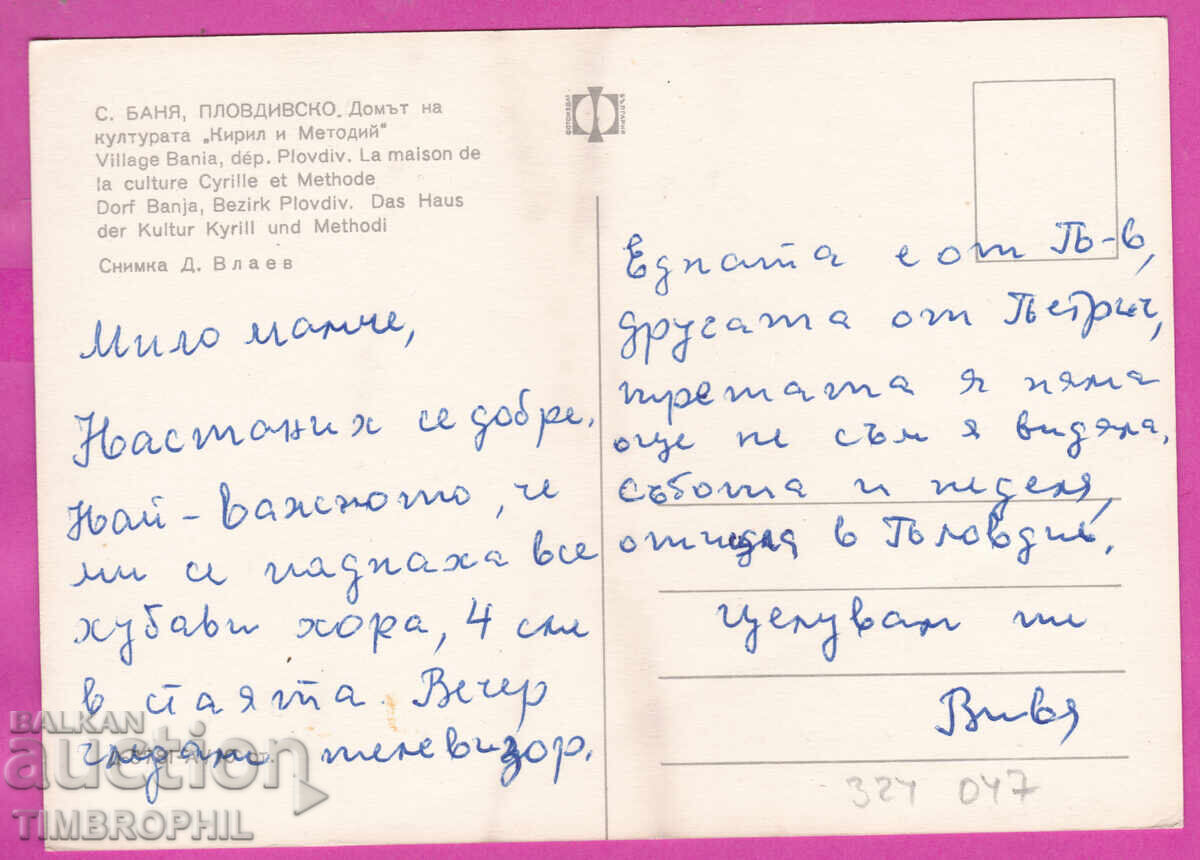 С. БАНЯ, ПЛОВДИВСКО. Домът на
културата „Кирил и Методий"
Village Bania, dép. Plovdiv. La maison de
la culture Cyrille et Methode
Dorf Banja, Bezirk Plovdiv. Das Haus
der Kultur Kyrill und Methodi
Снимка Д. Влаев
ФОТОИЗДАТ
БЪЛГАРИЯ
Мило мамче,
Настаних се добре.
Най-важното, че
ми се паднаха все
хубави хора, 4 сме
в стаята. Вечер
гледаме телевизор.
Едната е от П-в,
другата от Петрич,
третата я няма
още не съм я видяла.
Събота и неделя,
отишла в Пловдив.
Целувам ти
324 047
BALKAN
auction
TIMBROPHIL